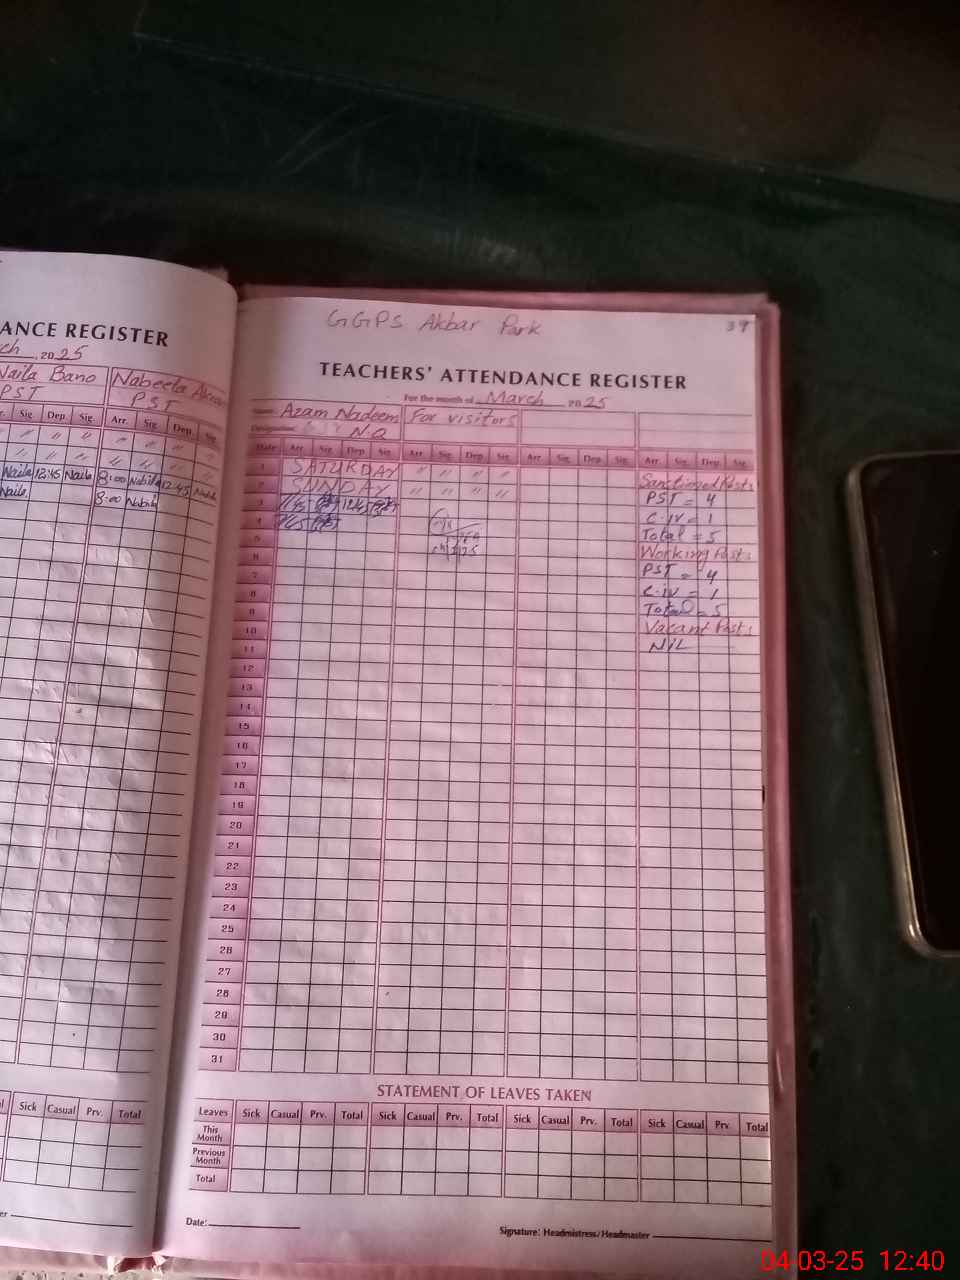 ANCE REGISTER
ch, 2025
Naila Bano
Nabeela
PST
PST
Sig. Dep. Sig. Arr. Sig. Dep. Sig.
" " " " " " "
" " " " " " "
Naila 12:45 Naila 8:00 Nabila 12:45 Nabila
Naila 8:00 Nabila
Sick Casual Prv. Total
GGPS Akbar Park
39
TEACHERS' ATTENDANCE REGISTER
For the month of March 2025
Name: Azam Nadeem For visitors
Designation: N.Q
Date Arr. Sig. Dep. Sig. Arr. Sig. Dep. Sig. Arr. Sig. Dep. Sig. Arr. Sig. Dep. Sig.
1 SATURDAY " " " " Sanctioned Posts
2 SUNDAY " " " " PST = 4
3 7:45 12:45 C-iv = 1
4 7:45 Total = 5
5 Working Posts
6 PST = 4
7 C-iv = 1
8 Total = 5
9 Vacant Posts
10 NIL
11
12
13
14
15
16
17
18
19
20
21
22
23
24
25
26
27
28
29
30
31
STATEMENT OF LEAVES TAKEN
Leaves Sick Casual Prv. Total Sick Casual Prv. Total Sick Casual Prv. Total Sick Casual Prv. Total
This Month
Previous Month
Total
Date:
Signature: Headmistress/Headmaster
04-03-25 12:40